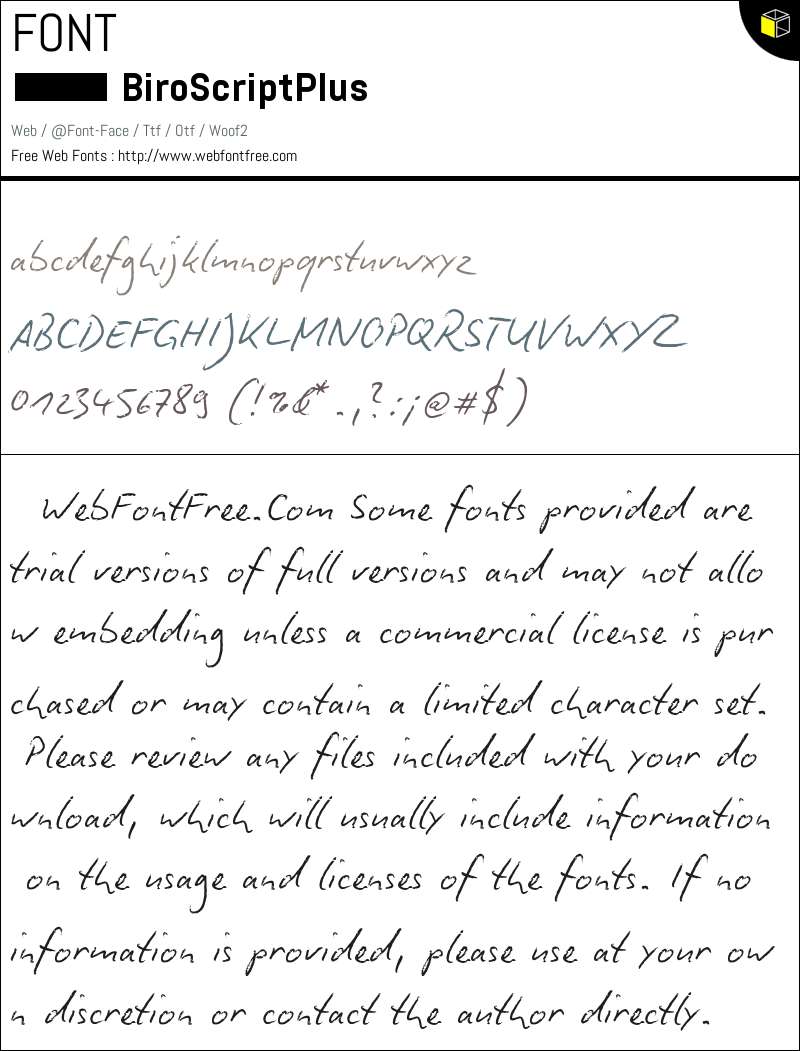 FONT
BiroScriptPlus
Web / @Font-Face / Ttf / Otf / Woof2
Free Web Fonts : http://www.webfontfree.com
abcdefghijklmnopqrstuvwxyz
ABCDEFGHIJKLMNOPQRSTUVWXYZ
0123456789 (!%&*.,?:;@#$)
WebFontFree.Com Some fonts provided are
trial versions of full versions and may not allo
w embedding unless a commercial license is pur
chased or may contain a limited character set.
Please review any files included with your do
wnload, which will usually include information
on the usage and licenses of the fonts. If no
information is provided, please use at your ow
n discretion or contact the author directly.